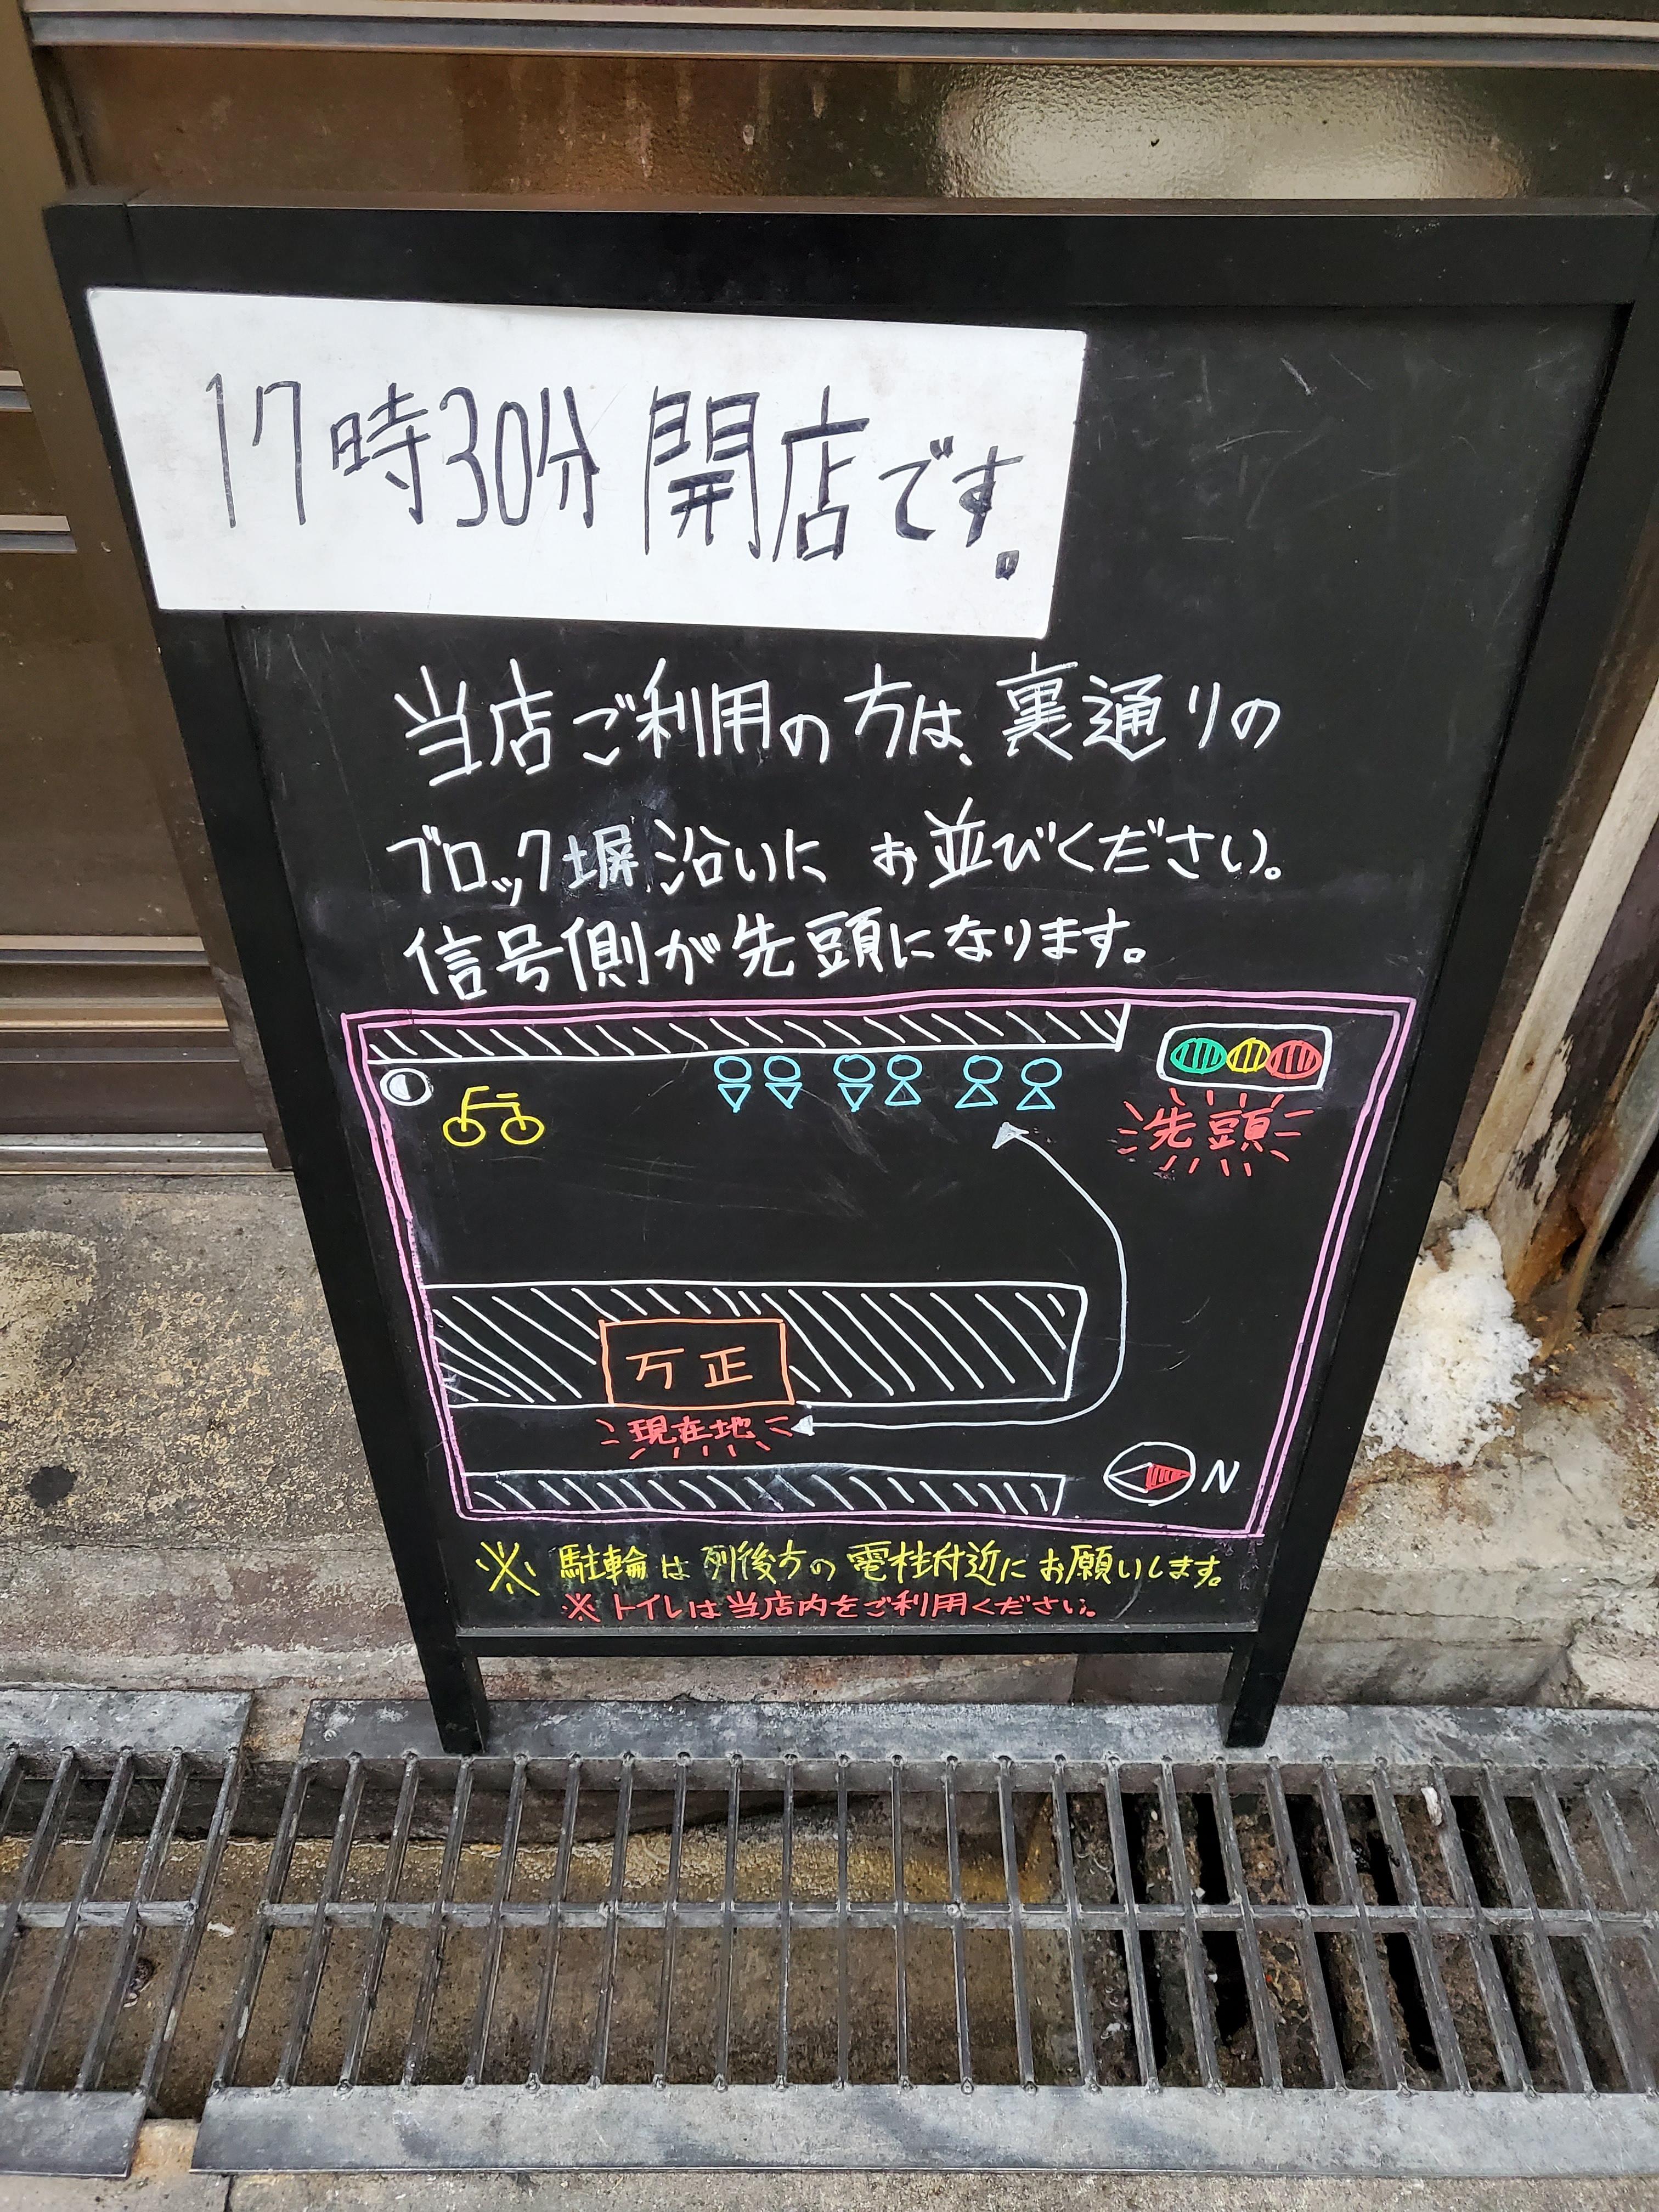 17時30分 開店です。
当店ご利用の方は、裏通りの
ブロック塀沿いに お並びください。
信号側が先頭になります。
先頭
万正
現在地
N
※ 駐輪は列後方の電柱付近にお願いします。
※トイレは当店内をご利用ください。